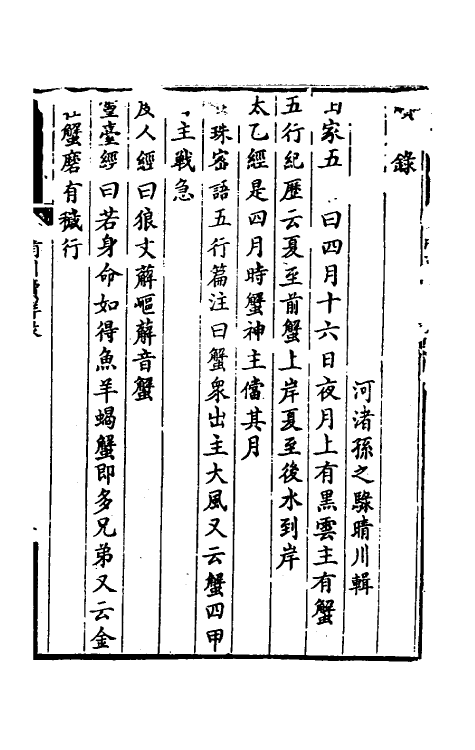 錄
河渚孫之騄晴川輯
家五 曰四月十六日夜月上有黑雲主有蟹
五行紀歷云夏至前蟹上岸夏至後水到岸
太乙經是四月時蟹神主儅其月
珠密語五行篇注曰蟹衆出主大風又云蟹四甲
主戰急
度人經曰狼丈薢嶇薢音蟹
臺經曰若身命如得魚羊蝎蟹即多兄弟又云金
蟹磨有穢行